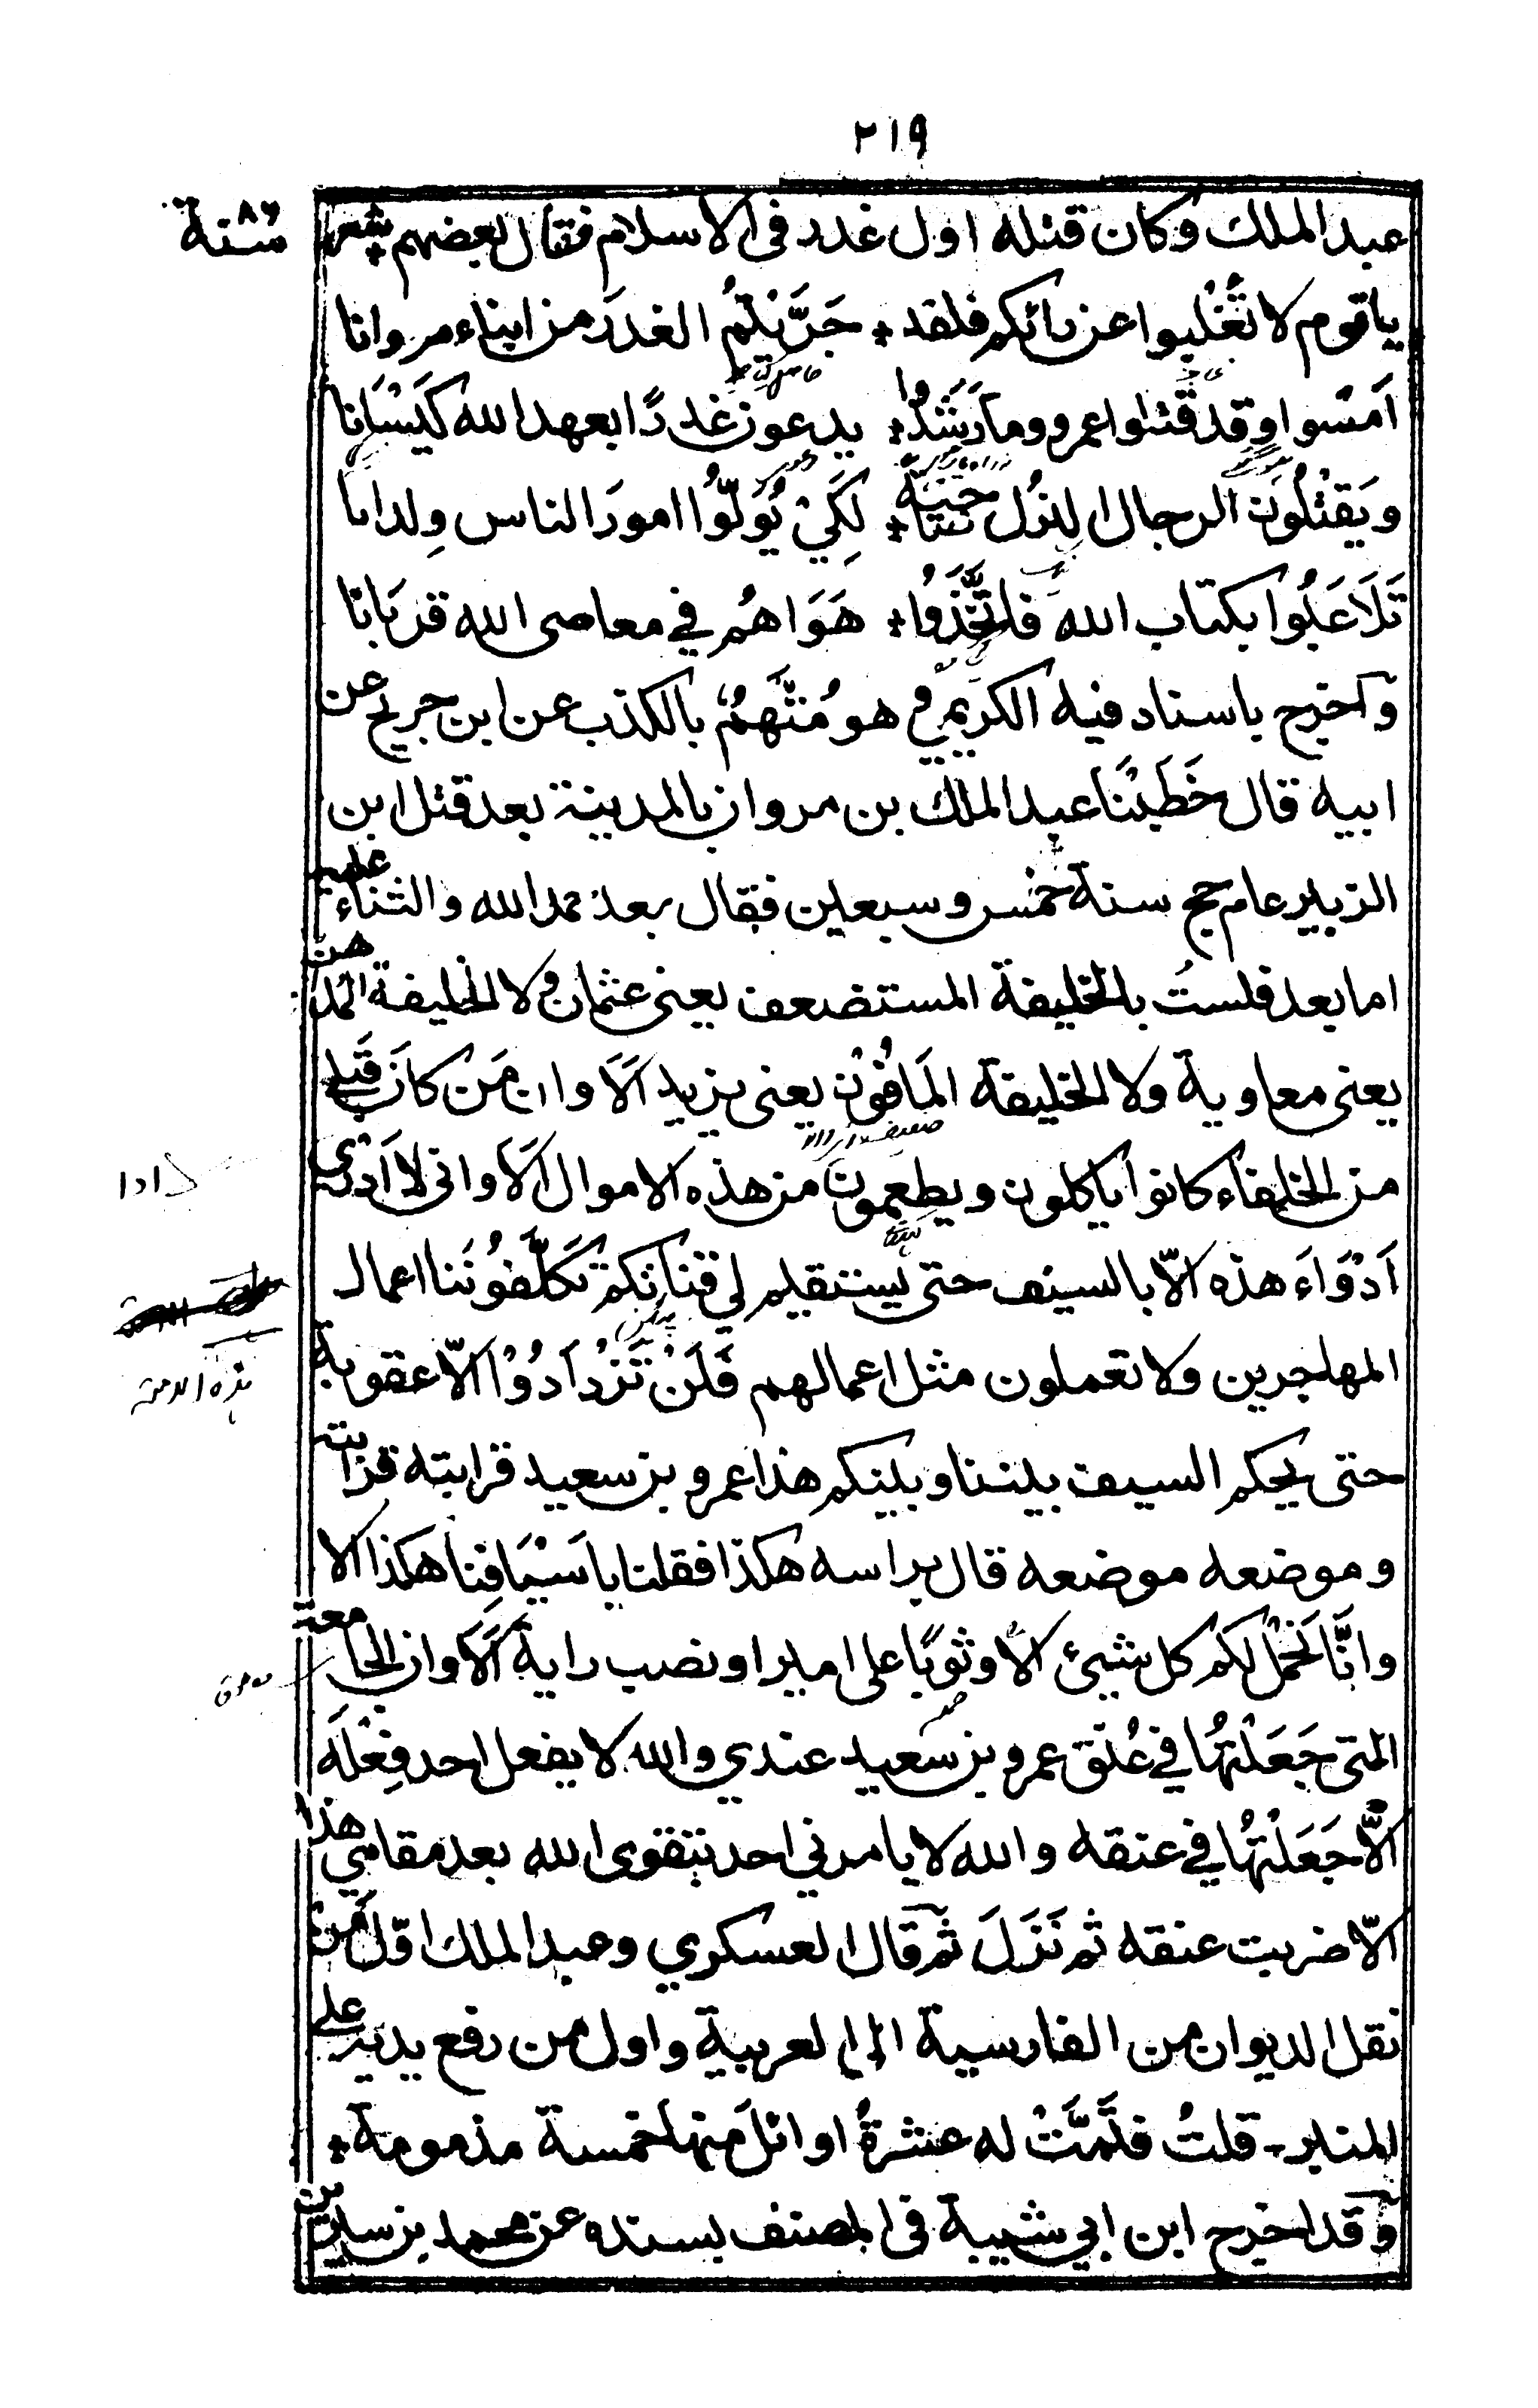 ٢١٩
سنة ٨٦
عبد الملك وكان قتله اول غدر فى الاسلام فقال بعضهم شعر
يا قوم لا تُغْلبوا عن رائكم فلقد * جَرَّبْتُمُ الغدرَ من ابناء مروانا
اَمسوا وقد قتلوا عمرو وما رَشَدُوا * يدعون غدرًا بعهد الله كَيْسَانا
ويَقْتُلُون الرجال البزل * لِكَيْ يُوَلُّوا امورَ الناس وِلدانا
تَلَاعَبُوا بكتاب الله فاتَّخَذُوا * هَوَاهُم في معاصى الله قربَانا
وآخرج باسناد فيه الكريمي وهو مُتَّهَمٌ بالكذب عن ابن جريج عن
ابيه قال خَطَبْنَا عبد الملك بن مروان بالمدينة بعد قتل ابن
الزبير عام حج سنة خمس وسبعين فقال بعد حمد الله والثناء عليه
اما بعد فلستُ بالخليفة المستضعف يعنى عثمان ولا الخليفة المداهن
يعنى معاوية ولا الخليفة المَافُوْن يعنى يزيد اَلَا وان مَن كانَ قَبلى
من الخلفاء كانوا ياكلون ويطعمون من هذه الاموال اَلَا وانى لا اَدْرى
اَدْوَاءَ هذه الّا بالسيف حتى يستقيم لي قناتكم تَكَلَّفُوْنَنا اعمال
المهاجرين ولا تعملون مثل اعمالهم فَلَنْ تَزْدَادُوْا الّا عقوبة
حتى يحكم السيف بيننا وبينكم هذا عمرو بن سعيد قرابته قرابته
وموضعه موضعه قال براسه هكذا فقلنا باَسْيَافِنا هكذا الا
وانَّا نحمل لكم كل شيئ الا وثوبًا على امير او نصب راية اَلَا وان الجامعة
التى جَعَلْتُهَا في عُنق عمرو بن سعيد عندي والله لا يفعل احد فِعْلَه
الّا جَعَلْتُهَا في عنقه والله لا يامرني احد بتقوى الله بعد مقامي هذا
الّا ضربت عنقه ثم نَزَلَ ثم قال العسكري وعبد الملك اوّل من
نقل الديوان من الفارسية الى العربية واول من رفع يديه على
المنبر - قلتُ فتَمَّتْ له عشرةُ اوائلَ منها خمسة مذمومة *
وقد اخرج ابن ابي شيبة فى المصنف بسنده عن محمد بن سيرين